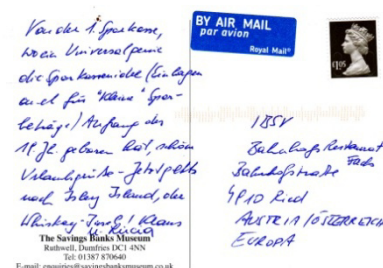 Von der 1. Sparkasse,
wo ein Universalgenie
die Sparkassenidee (Einlagen
auch für "kleine" Spar-
beträge) Anfang des
19. Jh. geboren hat, schöne
Urlaubsgrüße - Jetzt geht's
nach Islay Island, der
Whiskey-Insel! Klaus
The Savings Banks Museum
Ruthwell, Dumfries DC1 4NN
Tel: 01387 870640
E-mail: enquiries@savingsbanksmuseum.co.uk
BY AIR MAIL
par avion
Royal Mail®
£1.05
IBSV
Bahnhofs Restaurant
Bahnhofstraße
4910 Ried
AUSTRIA / ÖSTERREICH
EUROPA